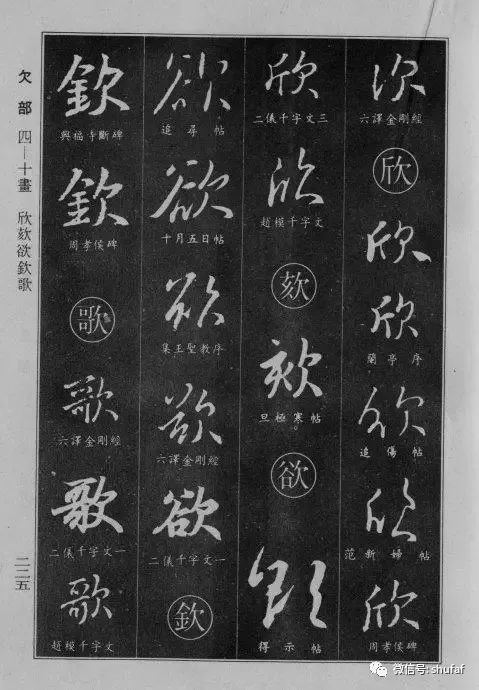 欠部 四—十畫 欣欬欲欽歌
二二五
次
六譯金剛經
欣
欣
欣
蘭亭序
欣
追傷帖
欣
范新婦帖
欣
周孝侯碑
欣
二儀千字文三
欣
趙模千字文
欬
欬
旦極寒帖
欲
欲
得示帖
欲
追尋帖
欲
十月五日帖
欲
集王聖教序
欲
六譯金剛經
欲
二儀千字文一
欽
欽
興福寺斷碑
欽
周孝侯碑
歌
歌
六譯金剛經
歌
二儀千字文一
歌
趙模千字文
微信号: shufaf